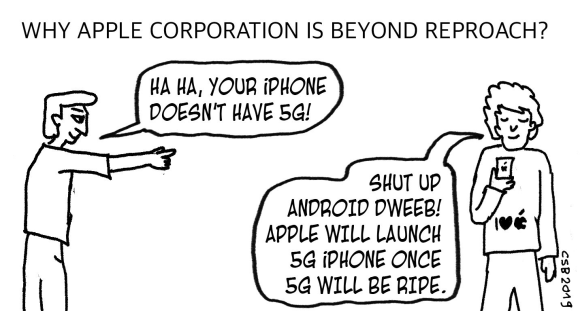 WHY APPLE CORPORATION IS BEYOND REPROACH?
HA HA, YOUR iPHONE
DOESN'T HAVE 5G!
SHUT UP
ANDROID DWEEB!
APPLE WILL LAUNCH
5G iPHONE ONCE
5G WILL BE RIPE.
I
CSB2019